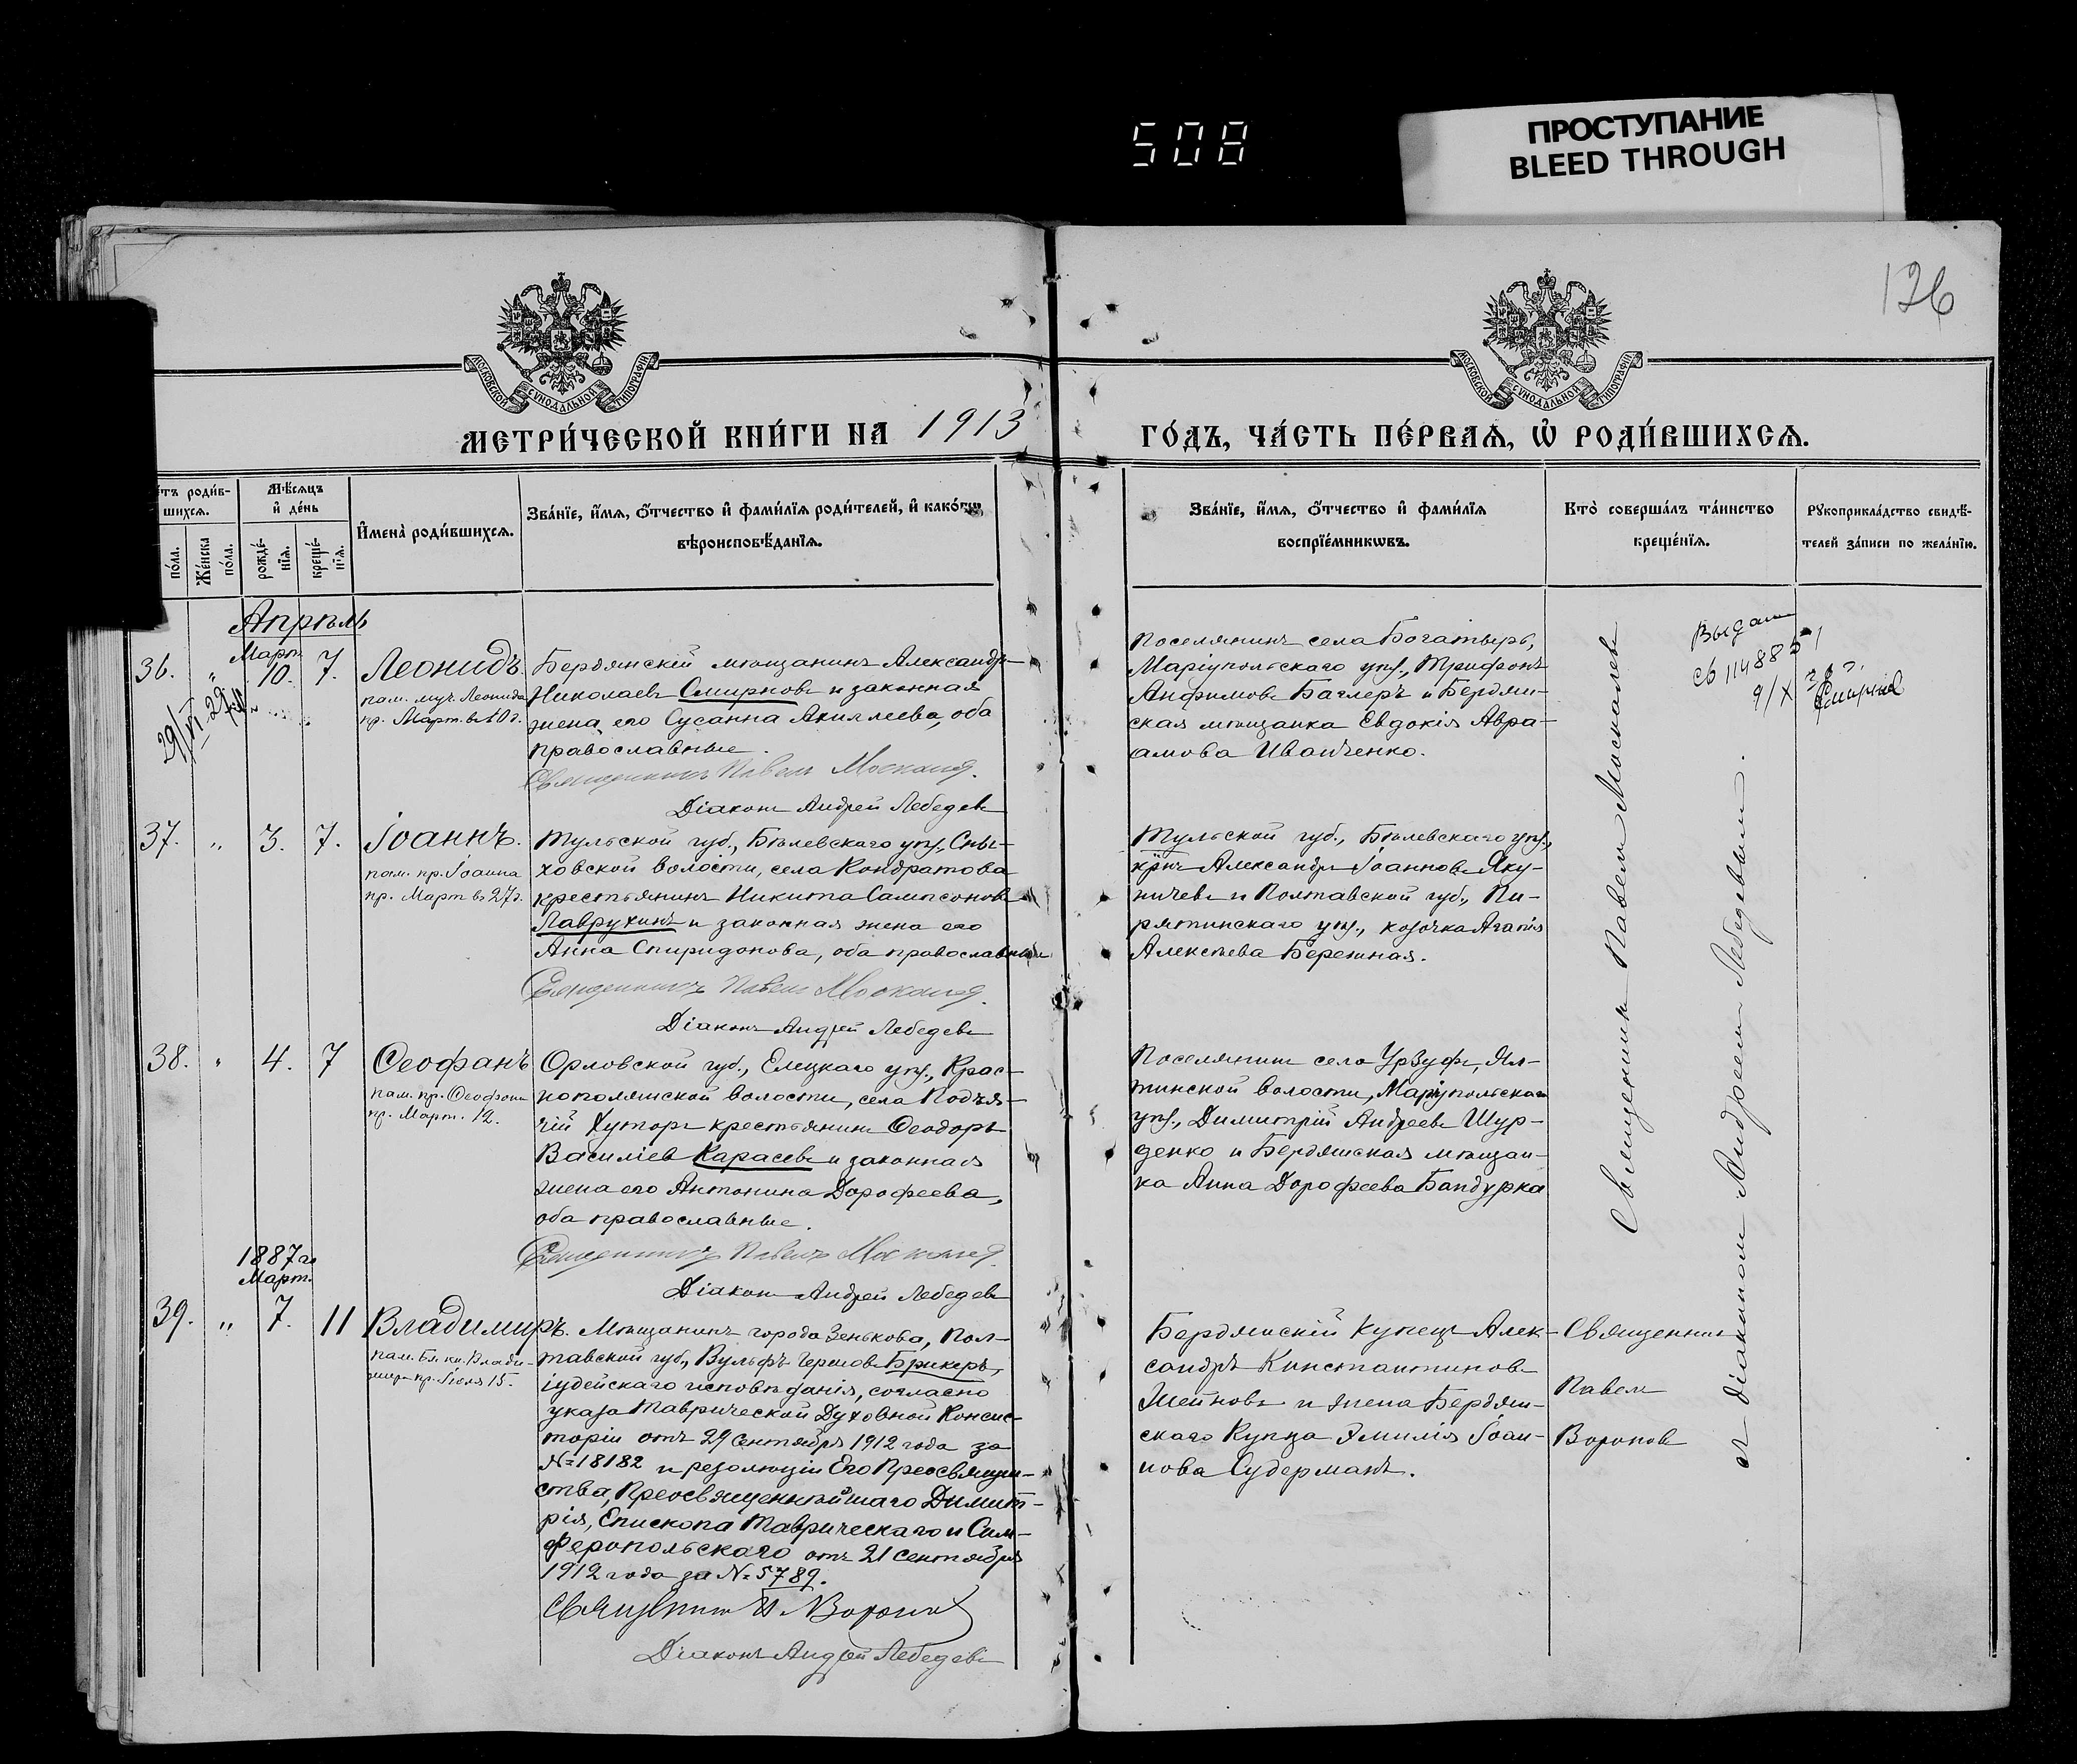 508
ПРОСТУПАНИЕ
BLEED THROUGH
126
МОСКОВСКОЙ СѴНОДАЛЬНОЙ ТИПОГРАФІИ
МОСКОВСКОЙ СѴНОДАЛЬНОЙ ТИПОГРАФІИ
МЕТРИ́ЧЕСКОЙ КНИ́ГИ НА 1913
ГО́ДЪ, ЧА́СТЬ ПЕ́РВАѦ, Ѡ҆ РОДИ́ВШИХСѦ.
тъ роди́в-
шихсѧ.
по́ла.
Же́нска
по́ла.
Мѣ́сѧцъ
и҆ де́нь
рожде́-
нїѧ.
креще́-
нїѧ.
И҆мена̀ роди́вшихсѧ.
Зва́нїе, и҆́мѧ, ѻ҆́тчество и҆ фами́лїѧ роди́телей, и҆ како́гѡ
вѣроисповѣ́данїѧ.
Зва́нїе, и҆́мѧ, ѻ҆́тчество и҆ фами́лїѧ
воспрїе́мникѡвъ.
Кто̀ соверша́лъ та́инство
креще́нїѧ.
Рꙋкоприкла́дство свидѣ́-
телей за́писи по жела́нїю.
Апрѣль
Март.
36. " 10. 7.
Леонидъ.
пам. муч. Леонида
пр. Март. въ 10 д.
Бердянскій мѣщанинъ Александръ
Николаевъ Смирновъ и законная
жена его Сусанна Ахиллеева, оба
православные.
Священникъ Павелъ Москалев.
Діаконъ Андрей Лебедевъ
Поселянинъ села Богатырь,
Маріупольскаго уѣз., Трифонъ
Анфимовъ Баглеръ и Бердян-
ская мѣщанка Евдокія Авра-
амова Иванченко.
Священникъ Павелъ Москалевъ
съ діакономъ Андреемъ Лебедевымъ.
37. " 3. 7.
Іоаннъ.
пам. пр. Іоанна
пр. Март въ 27 д.
Тульской губ., Бѣлевскаго уѣз., Спы-
ховской волости, села Кондратова
крестьянинъ Никита Сампсоновъ
Лаврухинъ и законная жена его
Анна Спиридонова, оба православные
Священникъ Павелъ Москалев.
Діаконъ Андрей Лебедевъ
Тульской губ., Бѣлевскаго уѣз.,
крнъ Александръ Іоанновъ Яку-
ничевъ и Полтавской губ., Пи-
рятинскаго уѣз., козачка Агапія
Алексѣева Бережная.
38. " 4. 7
Ѳеофанъ
пам. пр. Ѳеофана
пр. Март. 12.
Орловской губ., Елецкаго уѣз., Крас-
нополянской волости, села Подъя-
чій Хуторъ крестьянинъ Ѳеодоръ
Василіев Карасевъ и законная
жена его Антонина Дорофеева,
оба православные.
Священникъ Павелъ Москалев.
Діаконъ Андрей Лебедевъ
Поселянинъ села Урзуфъ, Ял-
тинской волости, Маріупольскаго
уѣз., Димитрій Андреевъ Шур-
денко и Бердянская мѣщан-
ка Анна Дорофеева Бандурка
1887 г.
Март.
39. " 7. 11
Владимиръ.
пам. Бл. кн. Влади-
мира пр. Іюля 15.
Мѣщанинъ города Зенькова, Пол-
тавской губ., Вульфъ Гершовъ Брикеръ,
іудейскаго исповѣданія, согласно
указа Таврической Духовной Консис-
торіи отъ 29 сентября 1912 года за
№ 18182 и резолюціи Его Преосвящен-
ства, Преосвященнѣйшаго Димит-
рія, Епископа Таврическаго и Сим-
феропольскаго отъ 21 сентября
1912 года за № 5789.
Священникъ П. Воронов
Діаконъ Андрей Лебедевъ
Бердянскій купецъ Алек-
сандръ Константиновъ
Шейновъ и жена Бердян-
скаго купца Эмилія Іоан-
нова Судерманъ.
Священникъ
Павелъ
Вороновъ